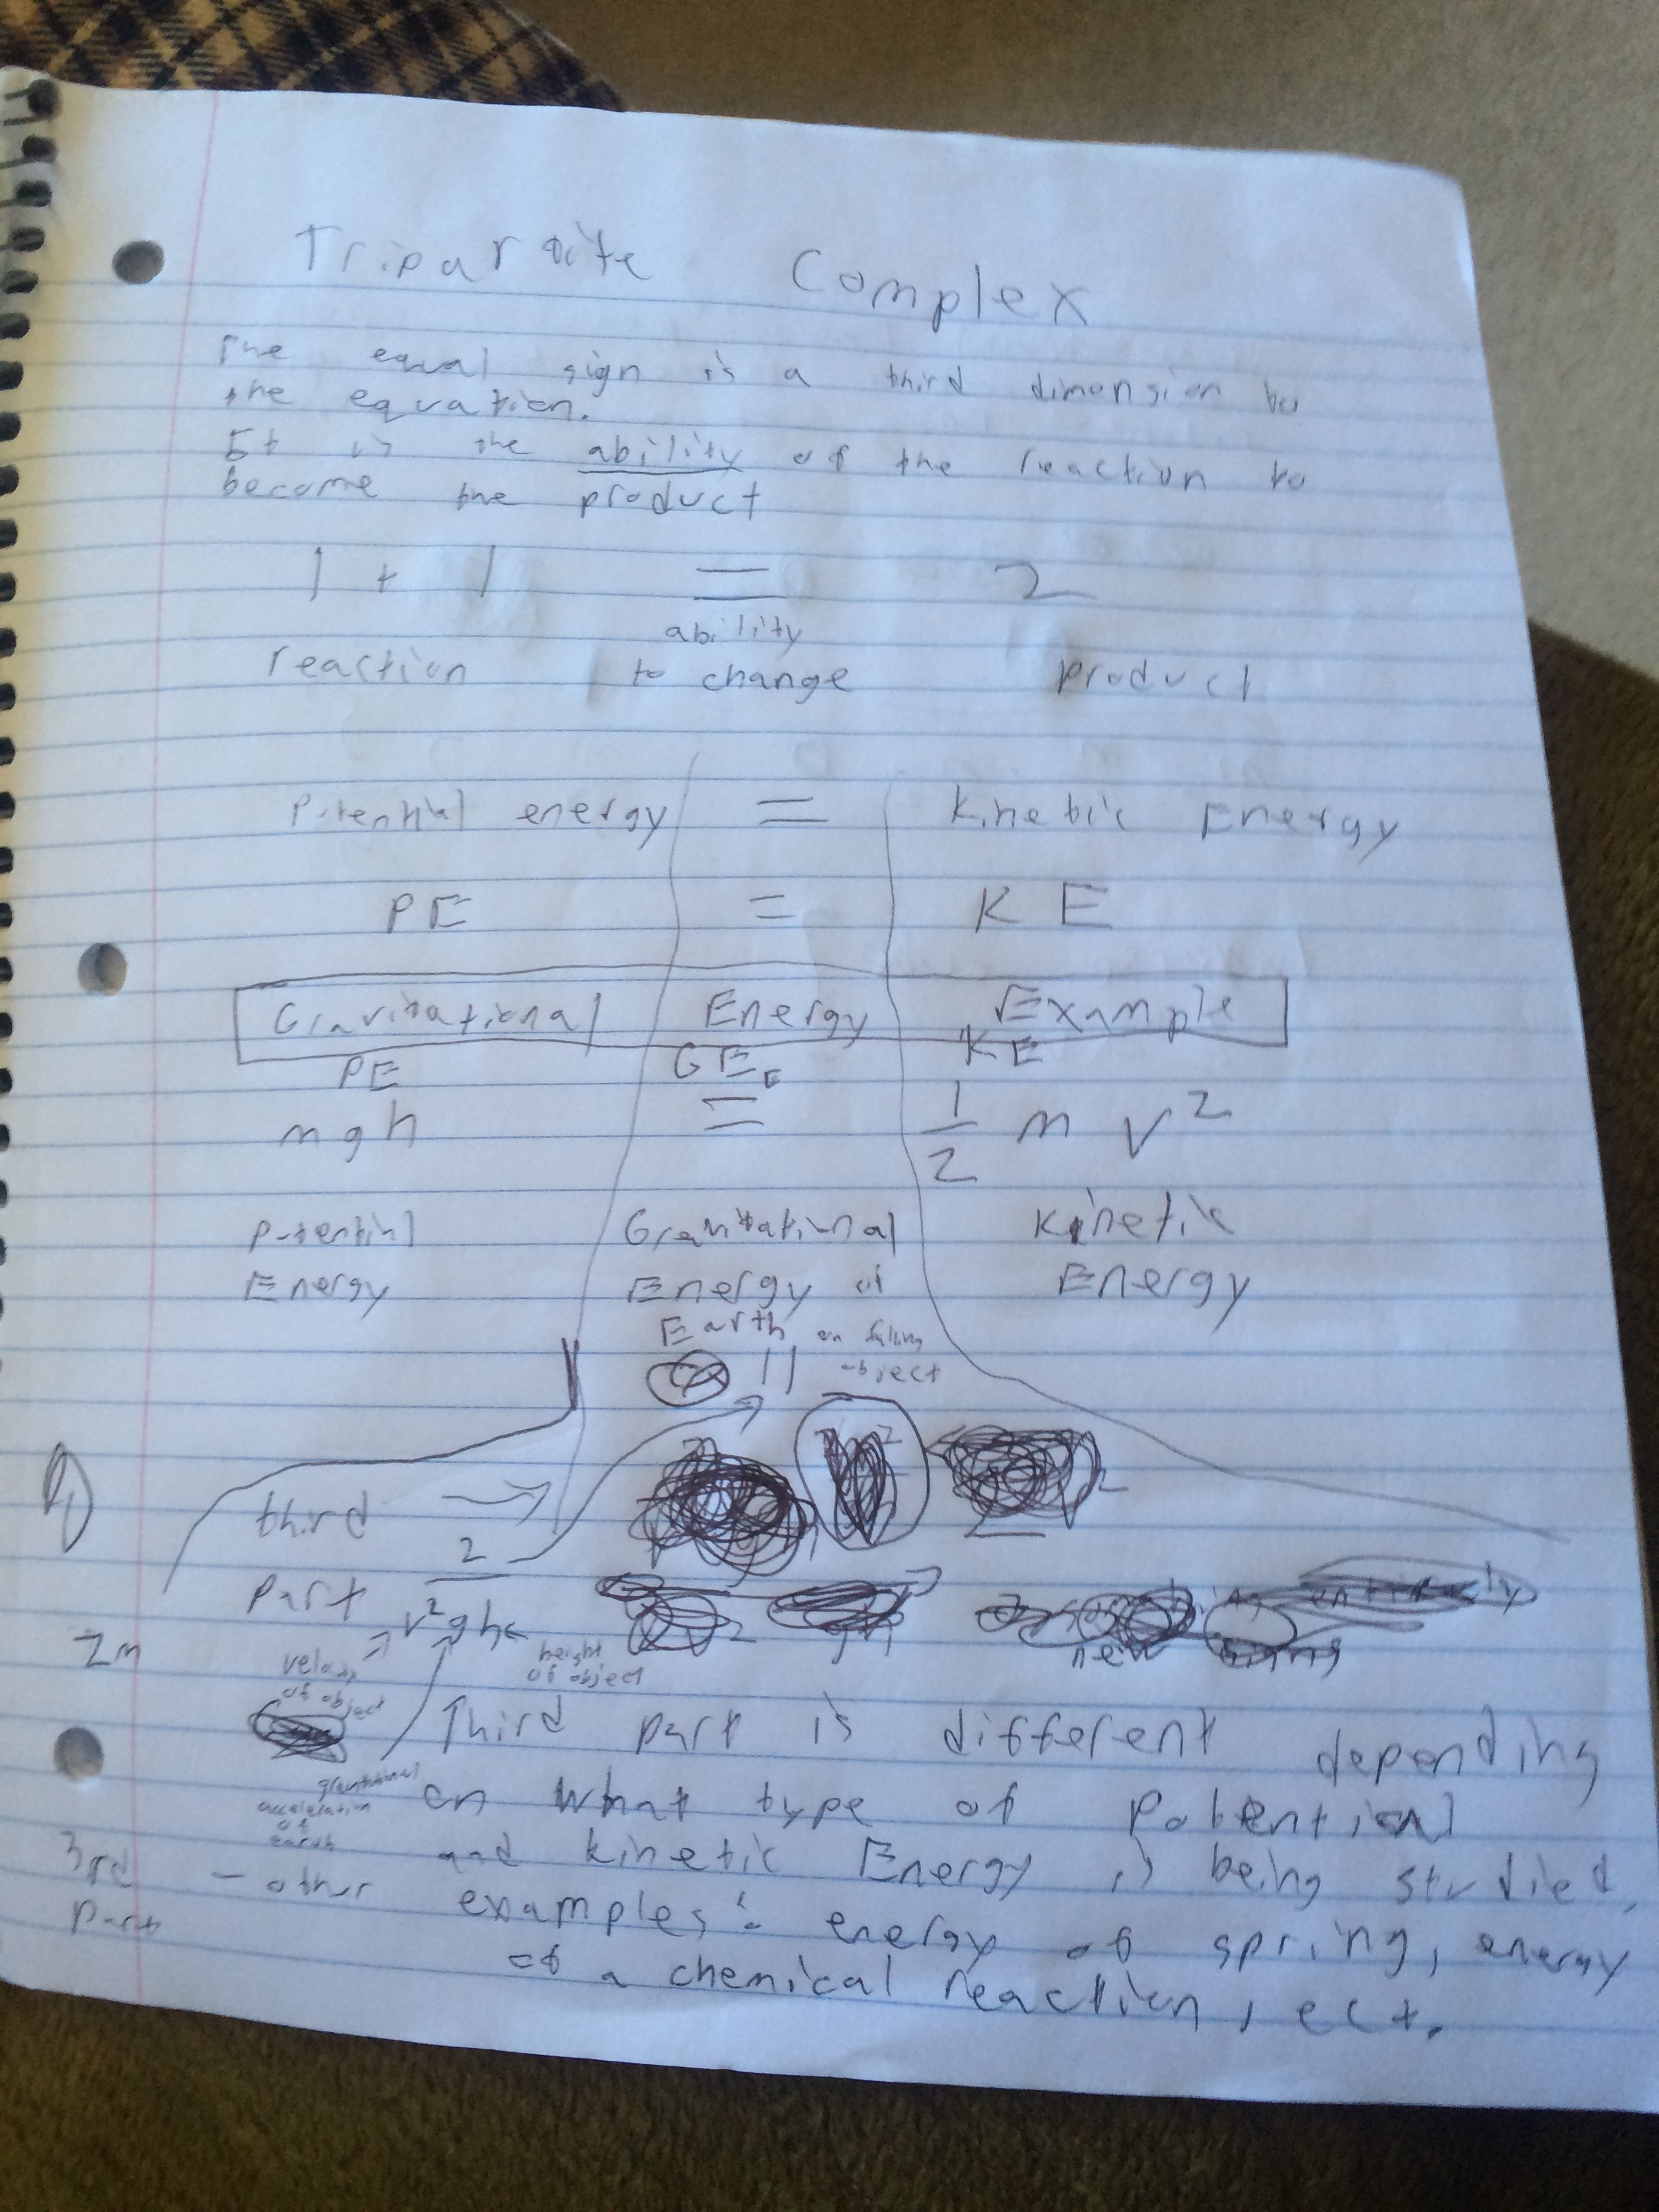 Tripartite Complex
The equal sign is a third dimension to
the equation.
It is the ability of the reaction to
become the product
1 + 1 = 2
ability
reaction to change product
Potential energy = Kinetic Energy
PE = KE
Gravitational Energy Example
PE GEE KE
mgh = 1/2 m v²
Potential Gravitational Kinetic
Energy Energy of Energy
Earth on falling
object
third
2
Part v²gh
2m
height
of object
of object
Third part is different depending
gravitational
on what type of Potential
acceleration
of
earth
and kinetic Energy is being studied.
3rd
Part
- other examples: energy of spring, energy
of a chemical reaction, ect.